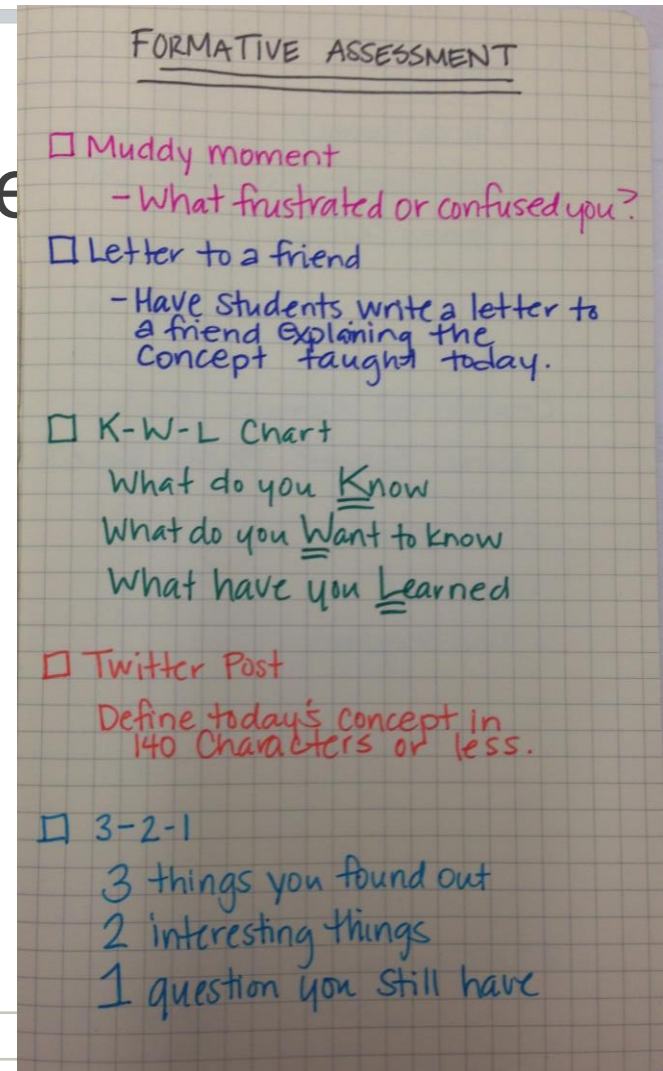 FORMATIVE ASSESSMENT
Muddy moment
- What frustrated or confused you?
Letter to a friend
- Have students write a letter to
a friend explaining the
concept taught today.
K-W-L Chart
What do you Know
What do you Want to know
What have you Learned
Twitter Post
Define today's concept in
140 Characters or less.
3-2-1
3 things you found out
2 interesting things
1 question you still have